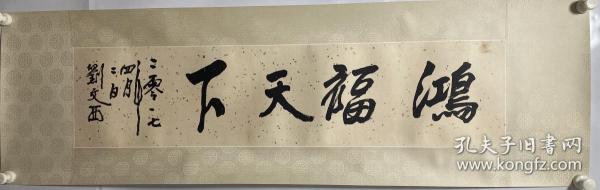 鴻福天下
二零一七
四月
三日
劉文西
孔夫子旧书网
www.kongfz.com